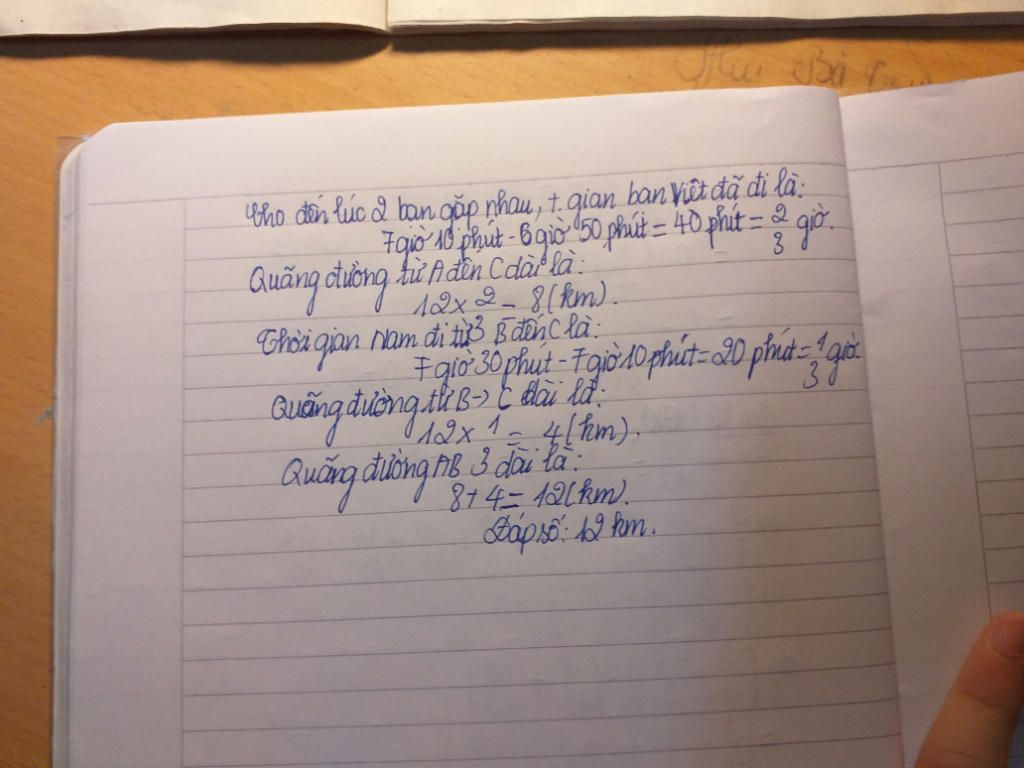 Cho đến lúc 2 bạn gặp nhau, t. gian bạn Việt đã đi là:
7giờ 10 phút - 6 giờ 50 phút = 40 phút = 2/3 giờ.
Quãng đường từ A đến C dài là:
12 x 2/3 = 8 (km).
Thời gian Nam đi từ B đến C là:
7 giờ 30 phut - 7giờ 10 phút = 20 phút = 1/3 giờ.
Quãng đường từ B -> C dài là:
12 x 1/3 = 4 (km).
Quãng đường AB dài là:
8 + 4 = 12 (km).
Đáp số: 12 km.